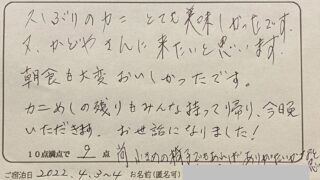 久しぶりのカニ とても美味しかったです。
又、かどやさんに来たいと思います。
朝食も大変おいしかったです。
カニめしの残りもみんな持って帰り、今晩
いただきます。 お世話になりました!
10点満点で 9 点
ご宿泊日 2022.4.3~4 お名前(匿名可)